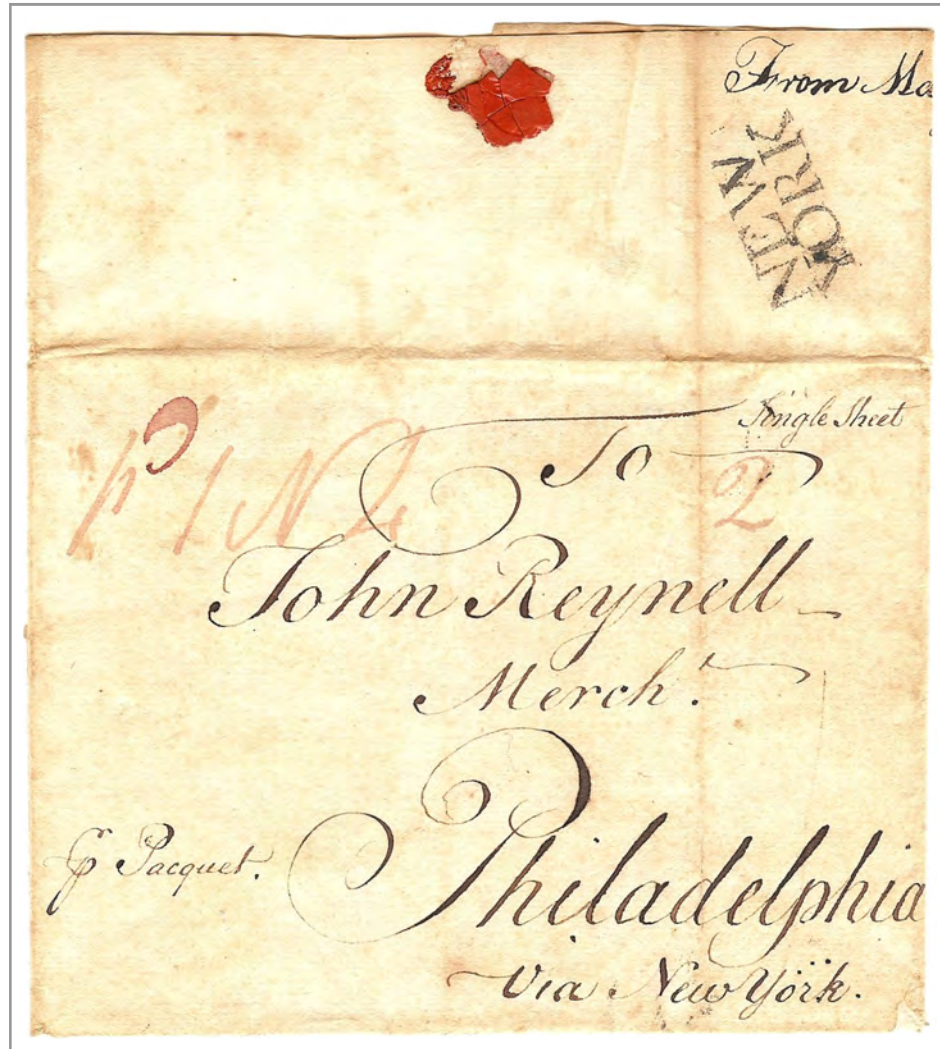 From Ma
NEW
YORK
Single Sheet
To
2
John Reynell
Merch.t
p Pacquet.
Philadelphia
Via New Yörk.